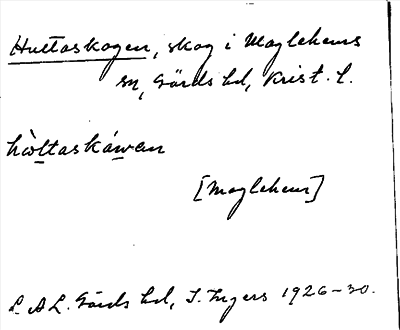 Hultaskogen, skog i Maglehems
sn, Gärds hd, Krist. l.
hòltaskáwan
[Maglehem]
L.A.L. Gärds hd, I. Ingers 1926-30.